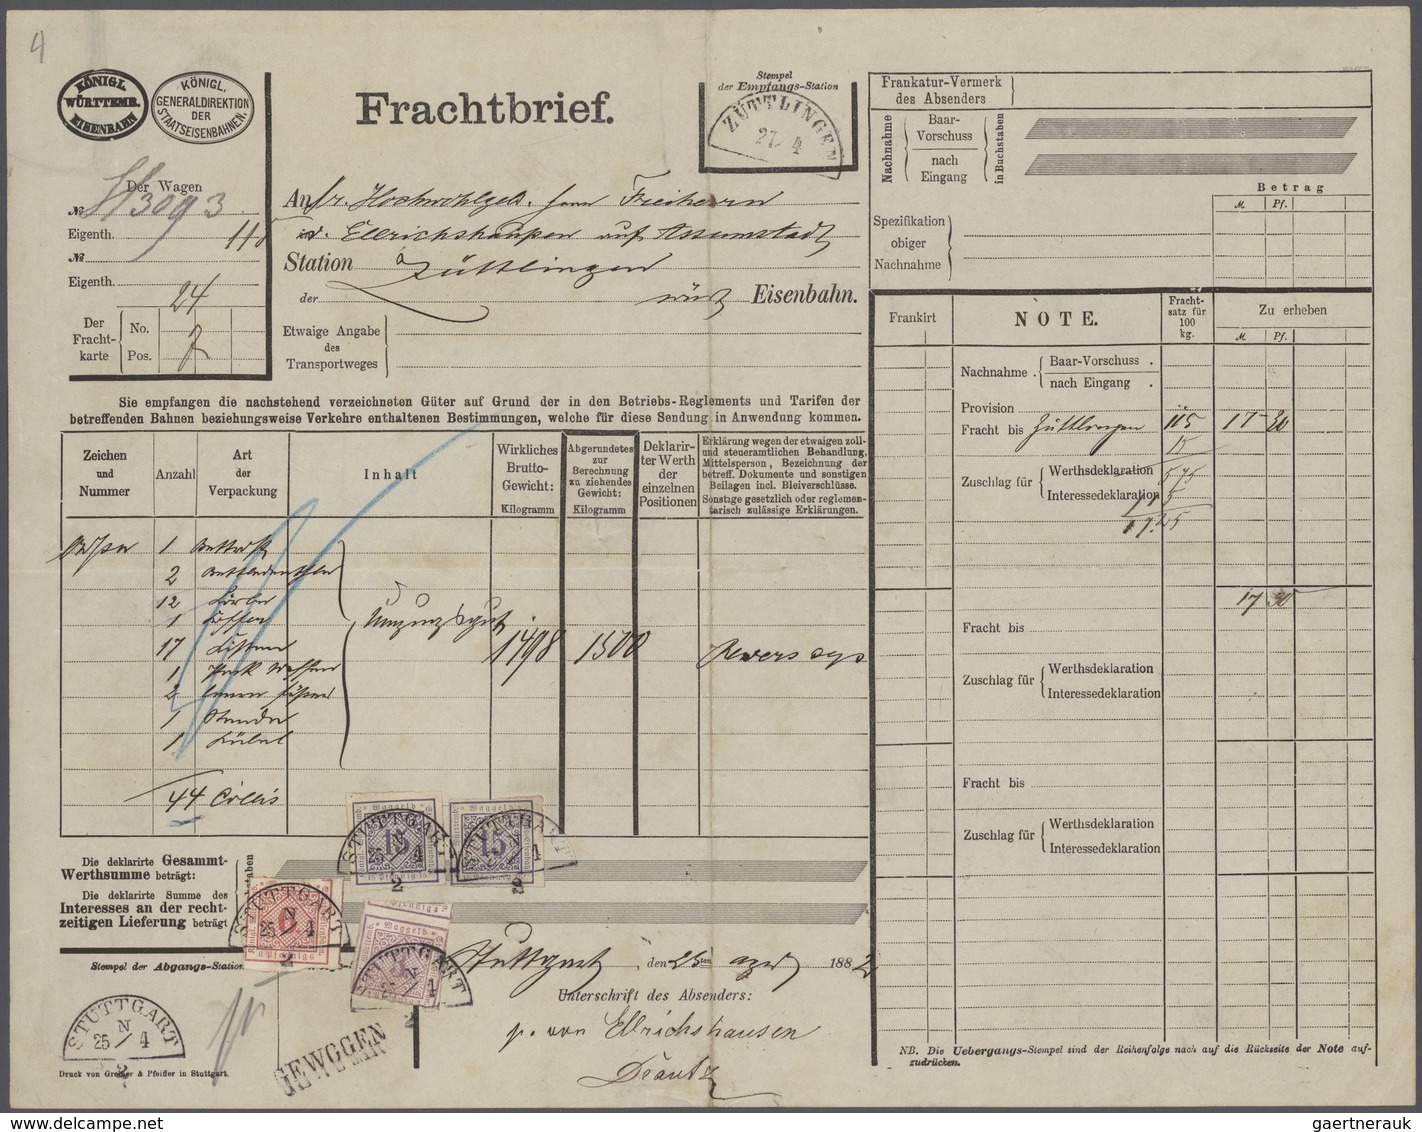 4
KÖNIGL.
WÜRTTEMB.
EISENBAHN
KÖNIGL.
GENERALDIREKTION
DER
STAATSEISENBAHNEN.
Frachtbrief.
Stempel
der Empfangs-Station
ZÜTTLINGEN
27/4
Der Wagen
№ 3093
Eigenth.
№
Eigenth.
24
Der
Fracht-
karte
No.
Pos. 7
An Hochwohlgeb. Herrn Freiherrn
v. Ellrichshausen auf Assumstadt
Station Züttlingen
der württ Eisenbahn.
Etwaige Angabe
des
Transportweges
Sie empfangen die nachstehend verzeichneten Güter auf Grund der in den Betriebs-Reglements und Tarifen der
betreffenden Bahnen beziehungsweise Verkehre enthaltenen Bestimmungen, welche für diese Sendung in Anwendung kommen.
Zeichen
und
Nummer
Anzahl
Art
der
Verpackung
Inhalt
Wirkliches
Brutto-
Gewicht:
Kilogramm
Abgerundetes
zur
Berechnung
zu ziehendes
Gewicht:
Kilogramm
Deklarir-
ter Werth
der
einzelnen
Positionen
Erklärung wegen der etwaigen zoll-
und steueramtlichen Behandlung,
Mittelsperson, Bezeichnung der
betreff. Dokumente und sonstigen
Beilagen incl. Bleiverschlüsse.
Sonstige gesetzlich oder reglemen-
tarisch zulässige Erklärungen.
1
2
12
1 Koffer
17 Kisten
1
2
1 Ständer
1 Kübel
Umzugsgut
1498
1500
Revers
44 Collis
Die deklarirte Gesammt-
Werthsumme beträgt:
Die deklarirte Summe des
Interesses an der recht-
zeitigen Lieferung beträgt
Waggeld
15
STUTTGART
N
25/4
2
Waggeld
15
STUTTGART
N
4
2
STUTTGART
N
25/4
2
Waggeld
STUTTGART
N
25/4
2
Stempel der Abgangs-Station
STUTTGART
N
25/4
2
Druck von Greiner & Pfeiffer in Stuttgart.
GEWOGEN
Stuttgart den 25ten April 1882
Unterschrift des Absenders:
p. von Ellrichshausen
Frankatur-Vermerk
des Absenders
Nachnahme
Baar-
Vorschuss
nach
Eingang
in Buchstaben
Betrag
M. Pf.
Spezifikation
obiger
Nachnahme
Frankirt
NOTE.
Fracht-
satz für
100
kg.
Zu erheben
M. Pf.
Nachnahme . Baar-Vorschuss .
nach Eingang .
Provision
Fracht bis Züttlingen 115 17
15
Zuschlag für Werthsdeklaration
Interessedeklaration
575
115
17.25
17 30
Fracht bis
Zuschlag für Werthsdeklaration
Interessedeklaration
Fracht bis
Zuschlag für Werthsdeklaration
Interessedeklaration
NB. Die Uebergangs-Stempel sind der Reihenfolge nach auf die Rückseite der Note auf-
zudrücken.
gaertnerauk / delcampe.net